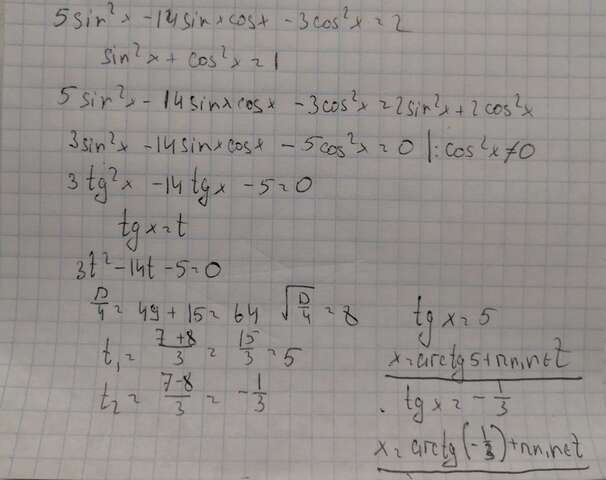 5sin²x - 14sinxcosx - 3cos²x = 2
sin²x + cos²x = 1
5sin²x - 14sinxcosx - 3cos²x = 2sin²x + 2cos²x
3sin²x - 14sinxcosx - 5cos²x = 0 |: cos²x ≠ 0
3tg²x - 14tgx - 5 = 0
tgx = t
3t² - 14t - 5 = 0
D/4 = 49 + 15 = 64 √(D/4) = 8
t₁ = (7+8)/3 = 15/3 = 5
t₂ = (7-8)/3 = -1/3
tgx = 5
x = arctg5 + πn, n∈Z
tgx = -1/3
x = arctg(-1/3) + πn, n∈Z